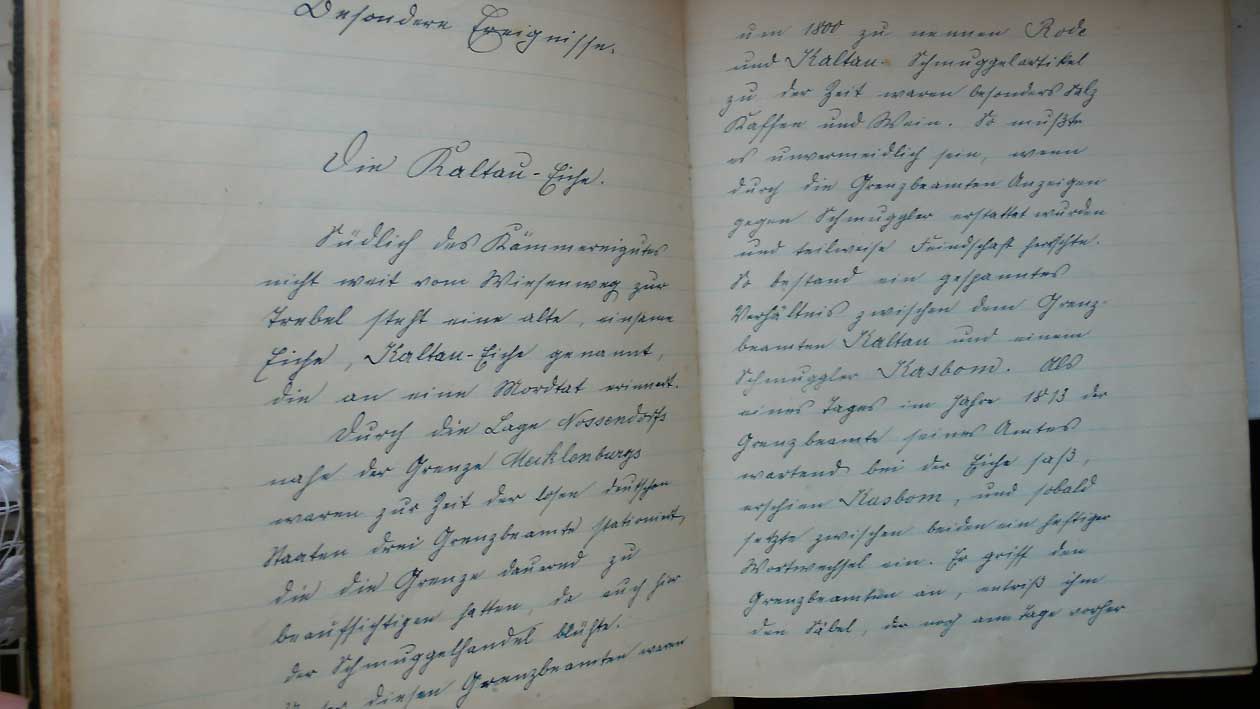 Besondere Ereignisse.
Die Kaltau-Eiche.
Südlich des Kämmereigutes
nicht weit vom Wiesenweg zur
Trebel steht eine alte, einsame
Eiche, Kaltau-Eiche genannt,
die an eine Mordtat erinnert.
Durch die Lage Nossendorfs
nahe der Grenze Mecklenburgs
waren zur Zeit der losen deutschen
Staaten drei Grenzbeamte stationiert,
die die Grenze dauernd zu
beaufsichtigen hatten, da auch hier
der Schmuggelhandel blühte.
Unter diesen Grenzbeamten waren
um 1800 zu nennen Rode
und Kaltau. Schmuggelartikel
zu der Zeit waren besonders Salz
Kaffee und Wein. So mußte
es unvermeidlich sein, wenn
durch die Grenzbeamten Anzeigen
gegen Schmuggler erstattet wurden
und teilweise Feindschaft herrschte.
So bestand ein gespanntes
Verhältnis zwischen dem Grenz-
beamten Kaltau und einem
Schmuggler Kasbom. Als
eines Tages im Jahre 1813 der
Grenzbeamte seines Amtes
wartend bei der Eiche saß,
erschien Kasbom, und sobald
setzte zwischen beiden ein heftiger
Wortwechsel ein. Er griff den
Grenzbeamten an, entriß ihm
den Säbel, der noch am Tage vorher